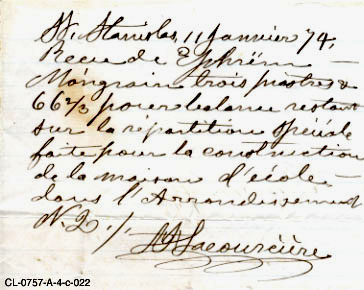 St. Stanislas, 11 Janvier 74,
Recu de Ephrèm
Mongrain trois piastres &
66 2/3 pour balance restant
sur la répartition spéciale
faite pour la construction
de la maison d'école
dans l'Arrondissement
N. 2. /.
Lacourcière
CL-0757-A-4-c-022